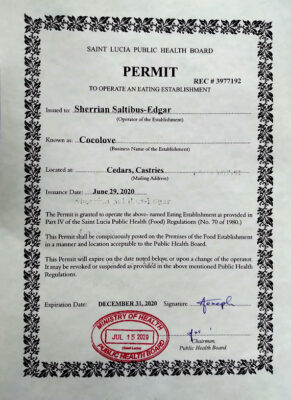 SAINT LUCIA PUBLIC HEALTH BOARD
PERMIT
REC # 3977192
TO OPERATE AN EATING ESTABLISHMENT
Issued to: Sherrian Saltibus-Edgar
(Operator of the Establishment)
Known as: Cocolove
(Business Name of the Establishment)
Located at: Cedars, Castries
(Mailing Address)
Issuance Date: June 29, 2020
The Permit is granted to operate the above-named Eating Establishment as provided in
Part IV of the Saint Lucia Public Health (Food) Regulations (No. 70 of 1980.)
This Permit shall be conspicuously posted on the Premises of the Food Establishment
in a manner and location acceptable to the Public Health Board.
This Permit will expire on the date noted below, or upon a change of the operator.
It may be revoked or suspended as provided in the above mentioned Public Health
Regulations.
Expiration Date: DECEMBER 31, 2020 Signature
MINISTRY OF HEALTH
JUL 15 2020
(Saint Lucia)
PUBLIC HEALTH BOARD
Chairman,
Public Health Board.